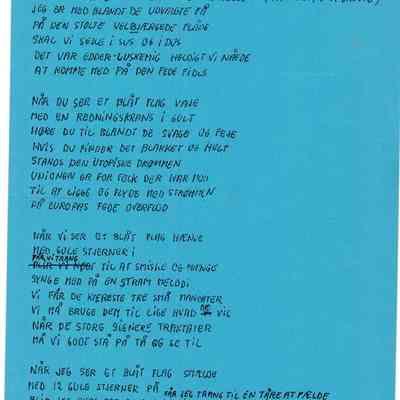 JEG ER MED BLANDT DE UDVALGTE PÅ
PÅ DEN STOLTE VELBJÆRGEDE FLÅDE
SKAL VI SEJLE I SUS OG I DUS
DET VAR EDDER-LUSKEMIG HELDIGT VI NÅEDE
AT KOMME MED PÅ DEN FEDE FIDUS
NÅR DU SER ET BLÅT FLAG VAJE
MED EN REDNINGSKRANS I GULT
HØRE DU TIL BLANDT DE SVAGE OG FEJE
HVIS DU FINDER DET BLAKKET OG HULT
STANDS DEN UTOPISKE DRØMMEN
UNIONEN ER FOR FOLK DER HAR MOD
TIL AT LIGGE OG FLYDE MED STRØMMEN
PÅ EUROPAS FEDE OVERFLOD
NÅR VI SER ET BLÅT FLAG HÆNGE
MED GULE STJERNER I
FÅR VI TRANG
TIL AT SMISKE OG MÆNGE
SYNGE MED PÅ EN STRAM MELODI
VI FÅR DE KÆRESTE TRE SMÅ MANDATER
VI MÅ BRUGE DEM TIL LIGE HVAD DE VIL
NÅR DE STORE SIGNERE TRAKTATER
MÅ VI GODT STÅ PÅ TÅ OG SE TIL
NÅR JEG SER ET BLÅT FLAG SMÆLDE
MED 12 GULE STJERNER PÅ
FÅR JEG TRANG TIL EN TÅRE AT FÆLDE